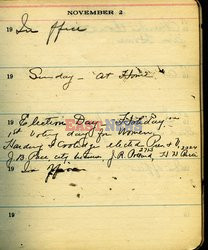 NOVEMBER 2
19
In Office
19
Sunday - At Home
19
Election Day - Holiday in
1st voting day for Women.
Harding & Coolidge elected Pres & V.
J.B. city J.R.
19
In Office
19